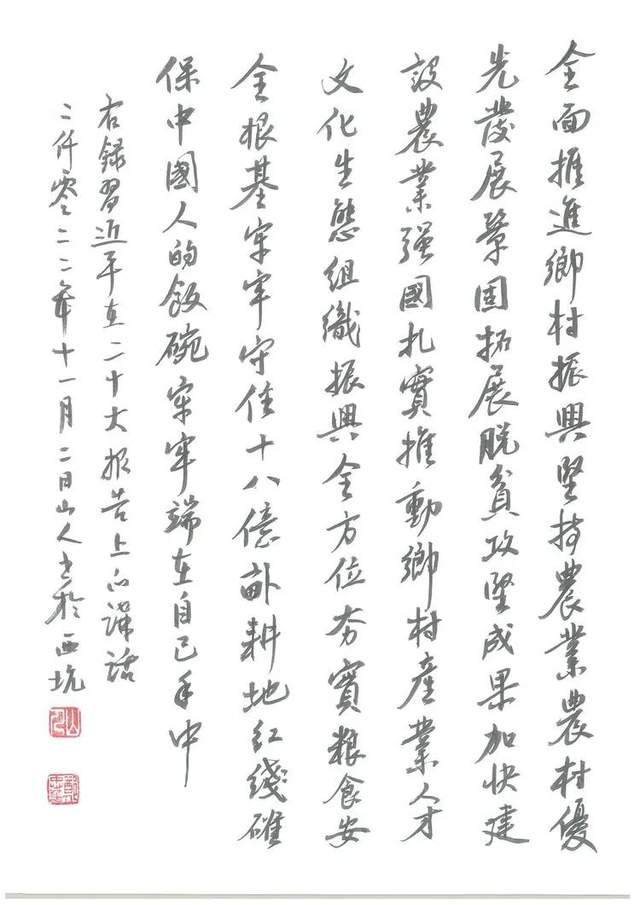 全面推進鄉村振興堅持農業農村優
先發展鞏固拓展脱貧攻堅成果加快建
設農業强國扎實推動鄉村産業人才
文化生態組織振興全方位夯實粮食安
全根基牢牢守住十八億畝耕地紅綫確
保中國人的飯碗牢牢端在自己手中
右録習近平在二十大报告上的講話
二仟零二二年十一月二日山人书於西坑